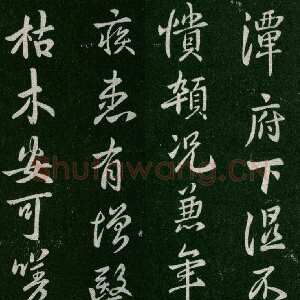 潭府下湿不
憒頓況兼年
疾恙有增毉
枯木安可
shufawang.CN